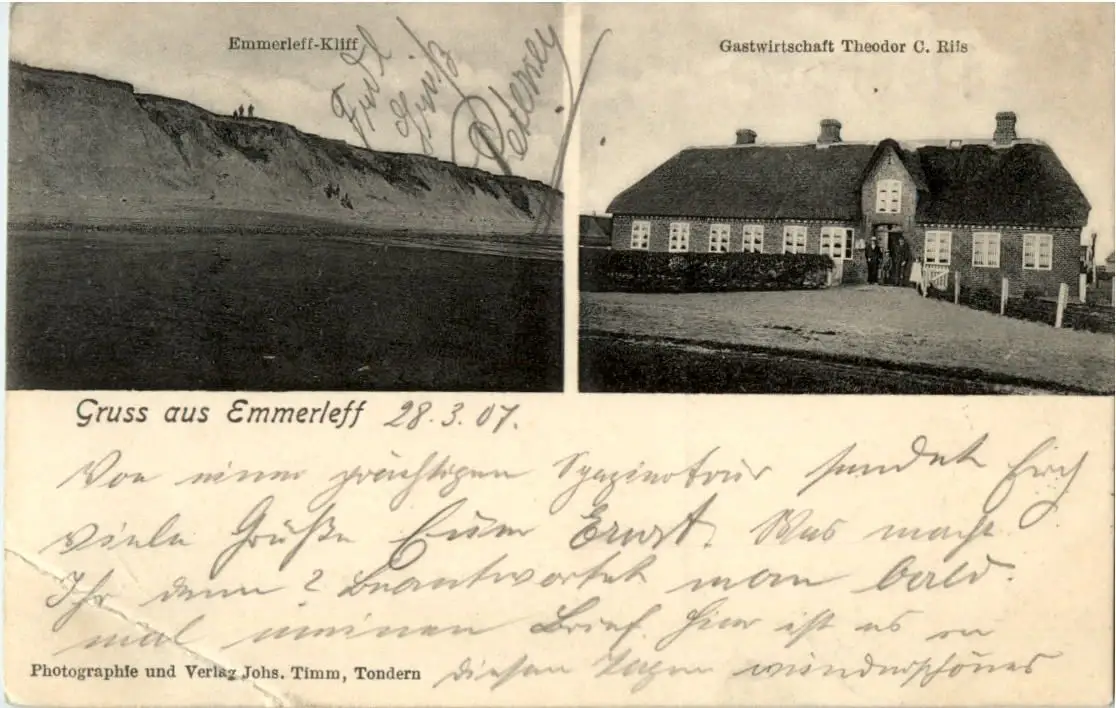 Emmerleff-Kliff
Gastwirtschaft Theodor C. Riis
Gruß
Petersen
Gruss aus Emmerleff 28.3.07.
Von einer prächtigen Spaziertour sendet Euch
viele Grüße Euer Ernst. Was macht
Ihr denn? Beantwortet man bald
mal meinen Brief. Hier ist es in
diesen Tagen wunderschönes
Photographie und Verlag Johs. Timm, Tondern